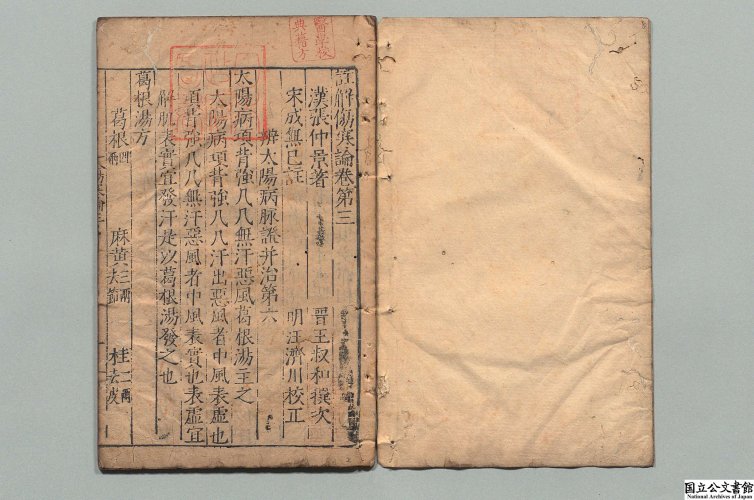 註解傷寒論卷第三
漢張仲景著 晉王叔和撰次
宋成無己註 明汪濟川校正
辨太陽病脉證并治第六
太陽病項背強几几無汗惡風葛根湯主之
太陽病項背強几几汗出惡風者中風表虛也
項背強几几無汗惡風者中風表實也表虛宜
解肌表實宜發汗是以葛根湯發之也
葛根湯方
葛根四兩 麻黃三兩去節 桂二兩去皮
醫學校
典藉方
国立公文書館
National Archives of Japan